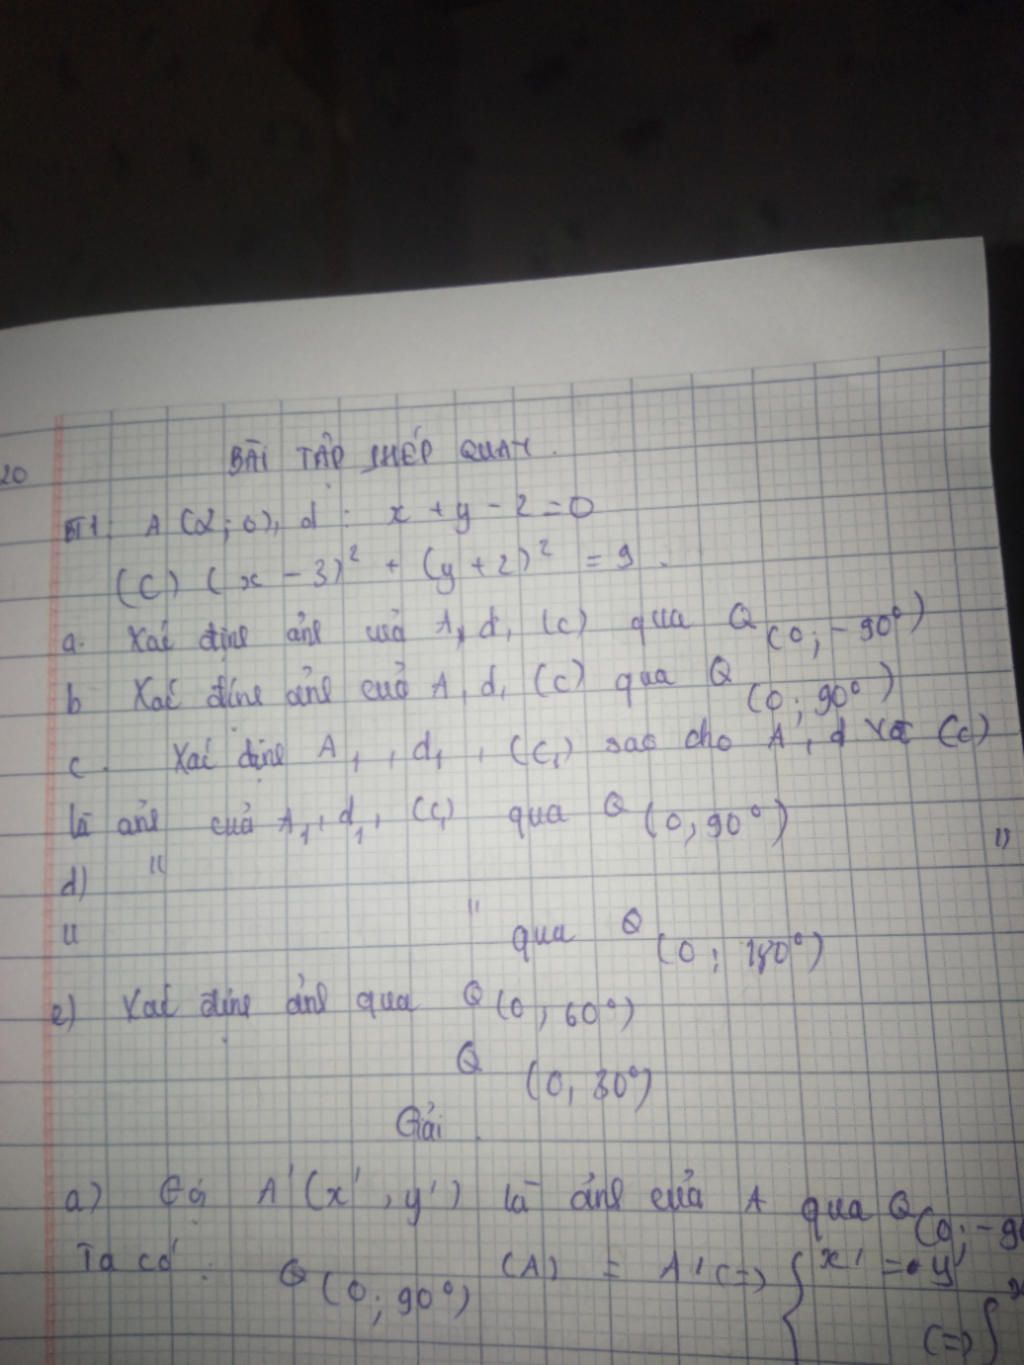 20
BÀI TẬP PHÉP QUAY.
BT1: A (2; 0), d : x + y - 2 = 0
(C) (x - 3)² + (y + 2)² = 9.
a. Xác định ảnh của A, d, (C) qua Q(0; -90°)
b Xác định ảnh của A, d, (C) qua Q(0; 90°)
c. Xác định A₁, d₁, (C₁) sao cho A, d và (C)
là ảnh của A₁, d₁, (C₁) qua Q(0, 90°)
d) " "
" " qua Q(0; 180°)
e) Xác định ảnh qua Q(0, 60°)
Q(0, 30°)
Giải
a) Gọi A'(x', y') là ảnh của A qua Q(0; -90
Ta có: Q(0; 90°) (A) = A' <=> { x' = y
<=> {